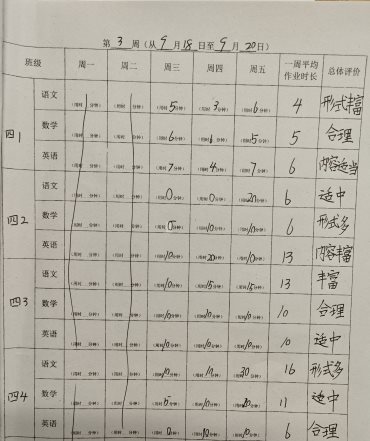 第 3 周（从 9 月 18 日至 9 月 20 日）
班级 周一 周二 周三 周四 周五 一周平均作业时长 总体评价
四1 语文 （用时 分钟） （用时 分钟） （用时 5 分钟） （用时 3 分钟） （用时 6 分钟） 4 形式丰富
数学 （用时 分钟） （用时 分钟） （用时 6 分钟） （用时 分钟） （用时 5 分钟） 5 合理
英语 （用时 分钟） （用时 分钟） （用时 7 分钟） （用时 4 分钟） （用时 7 分钟） 6 内容适当
四2 语文 （用时 分钟） （用时 分钟） （用时 0 分钟） （用时 0 分钟） （用时 20 分钟） 6 适中
数学 （用时 分钟） （用时 分钟） （用时 分钟） （用时 10 分钟） （用时 10 分钟） 6 形式多
英语 （用时 分钟） （用时 分钟） （用时 10 分钟） （用时 20 分钟） （用时 10 分钟） 13 内容丰富
四3 语文 （用时 分钟） （用时 分钟） （用时 10 分钟） （用时 15 分钟） （用时 15 分钟） 13 丰富
数学 （用时 分钟） （用时 分钟） （用时 10 分钟） （用时 10 分钟） （用时 分钟） 10 合理
英语 （用时 分钟） （用时 分钟） （用时 10 分钟） （用时 10 分钟） （用时 10 分钟） 10 适中
四4 语文 （用时 分钟） （用时 分钟） （用时 10 分钟） （用时 10 分钟） （用时 30 分钟） 16 形式多
数学 （用时 分钟） （用时 分钟） （用时 分钟） （用时 10 分钟） （用时 20 分钟） 11 适中
英语 （用时 分钟） （用时 分钟） （用时 分钟） （用时 10 分钟） （用时 10 分钟） 6 合理